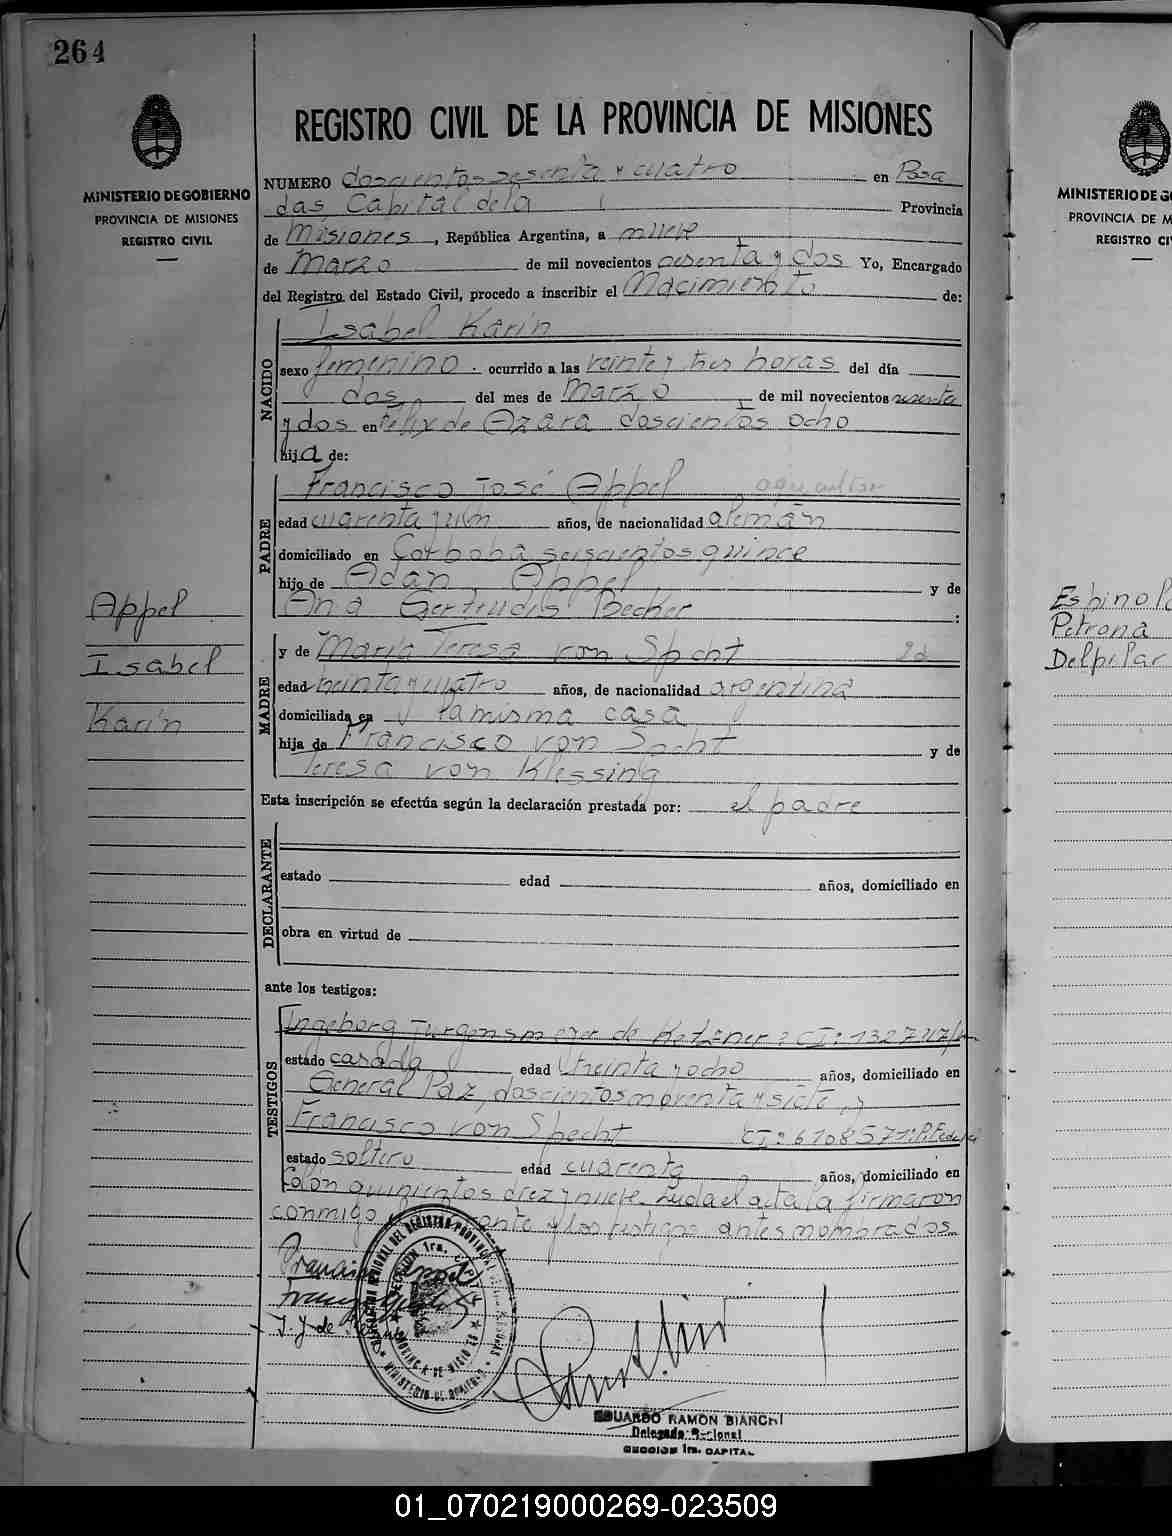 264
REGISTRO CIVIL DE LA PROVINCIA DE MISIONES
MINISTERIO DE GOBIERNO
PROVINCIA DE MISIONES
REGISTRO CIVIL
NUMERO doscientos sesenta y cuatro en Posa
das Capital de la Provincia
de Misiones, República Argentina, a nueve
de Marzo de mil novecientos sesenta y dos Yo, Encargado
del Registro del Estado Civil, procedo a inscribir el Nacimiento de:
NACIDO
Isabel Karin
sexo femenino. ocurrido a las veinte y tres horas del día
dos del mes de Marzo de mil novecientos sesenta
y dos en Felix de Azara doscientos ocho
hija de:
PADRE
Francisco José Appel
edad cuarenta y un años, de nacionalidad alemán
domiciliado en Corboba seiscientos quince
hijo de Adan Appel y de
Ana Gertrudis Becker :
Appel
Isabel
Karin
MADRE
y de María Teresa von Spcht
edad treinta y cuatro años, de nacionalidad argentina
domiciliada en la misma casa
hija de Francisco von Spcht y de
Teresa von Klessing
Esta inscripción se efectúa según la declaración prestada por: el padre
DECLARANTE
estado edad años, domiciliado en
obra en virtud de
ante los testigos:
TESTIGOS
Ingeborg de Ketzner
estado casada edad treinta y ocho años, domiciliado en
General Paz, doscientos noventa y siete, y
Francisco von Specht CI: 6108571: P. Federal
estado soltero edad cuarenta años, domiciliado en
Colón quinientos diez y nueve. Leida el acta la firmaron
conmigo y los testigos antes nombrados.
EDUARDO RAMON BIANCHI
Delegado Regional
SECCION 1ra. CAPITAL
MINISTERIO DE GO
PROVINCIA DE M
REGISTRO CI
Espinola
Petrona
Delpilar
01_070219000269-023509